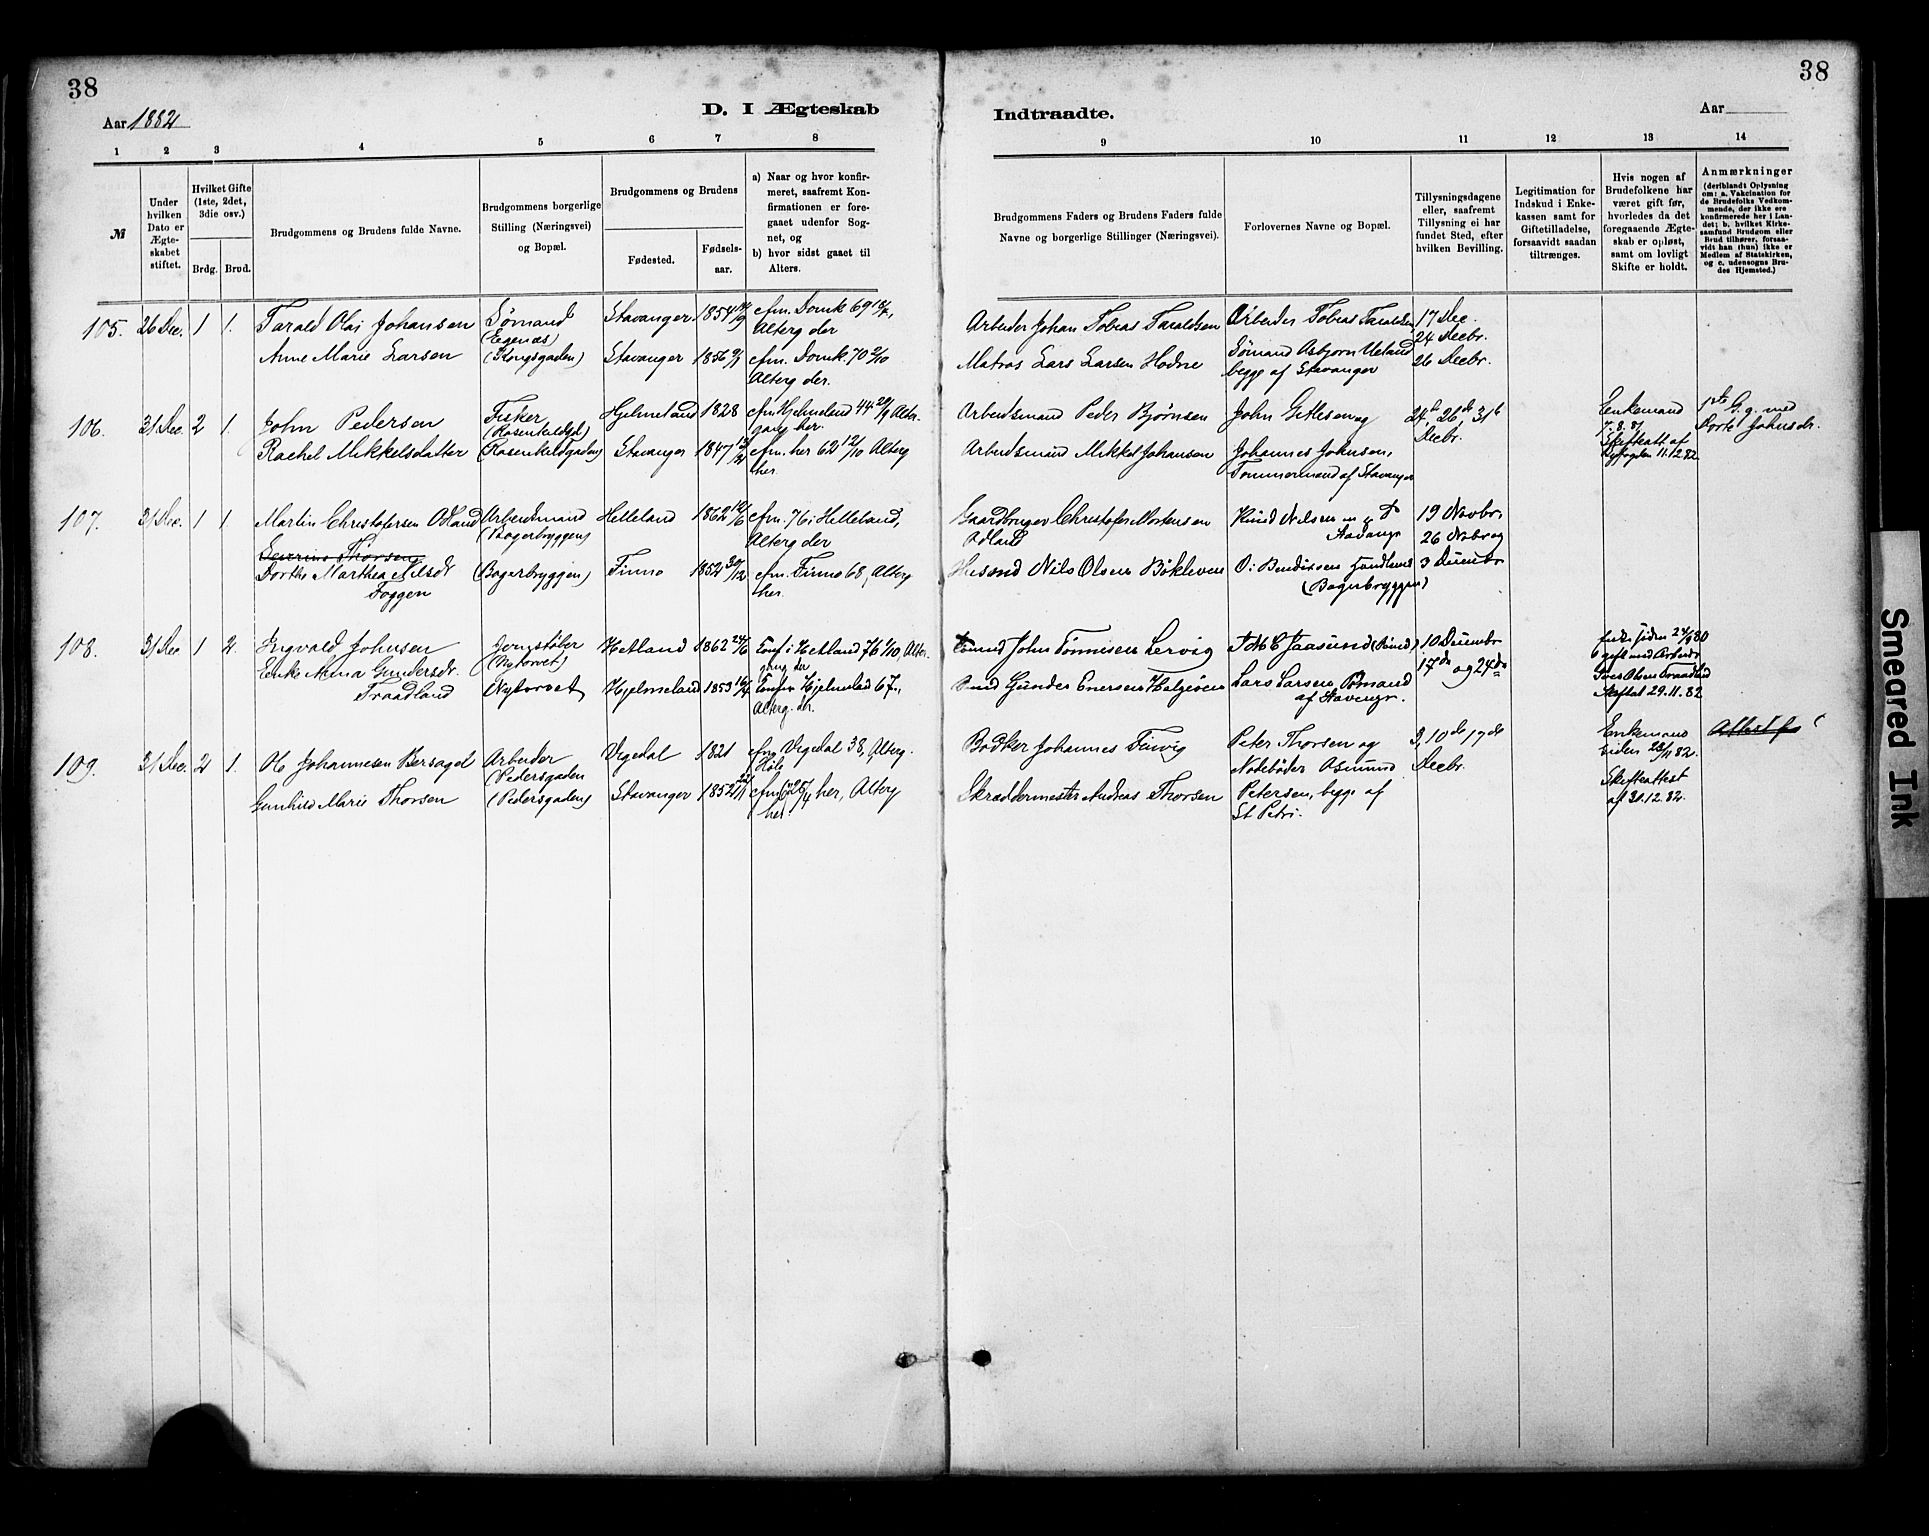 38
38
Aar 1882
D. I Ægteskab
Indtraadte.
Aar
1 2 3 4 5 6 7 8 9 10 11 12 13 14
№
Under hvilken Dato er Ægteskabet stiftet.
Hvilket Gifte (1ste, 2det, 3die osv.)
Brdg. Brud.
Brudgommens og Brudens fulde Navne.
Brudgommens borgerlige Stilling (Næringsvei) og Bopæl.
Brudgommens og Brudens
Fødested.
Fødselsaar.
a) Naar og hvor konfirmeret, saafremt Konfirmationen er foregaaet udenfor Sognet, og
b) hvor sidst gaaet til Alters.
Brudgommens Faders og Brudens Faders fulde Navne og borgerlige Stillinger (Næringsvei).
Forlovernes Navne og Bopæl.
Tillysningsdagene eller, saafremt Tillysning ei har fundet Sted, efter hvilken Bevilling.
Legitimation for Indskud i Enkekassen samt for Giftetilladelse, forsaavidt saadan tiltrænges.
Hvis nogen af Brudefolkene har været gift før, hvorledes da det foregaaende Ægteskab er opløst, samt om lovligt Skifte er holdt.
Anmærkninger
(deriblandt Oplysning om: a. Vakcination for de Brudefolks Vedkommende, der ikke ere konfirmerede her i Landet; b. hvilket Kirkesamfund Brudgom eller Brud tilhører, forsaavidt han (hun) ikke er Medlem af Statskirken, og c. udensogns Brudes Hjemsted.)
105. 26 Dec. 1 1. Tarald Olai Johansen Sømand (Egenæs) Stavanger 1854 cfm. Domk 69 18/7, Alterg der Arbeider Johan Tobias Taraldsen Arbeider Tobias Taraldsen, 17 Dec. 24 Decbr.
Anne Marie Larsen (Kongsgaden) Stavanger 1856 cfm. Domk. 70 2/10 Alterg der. Matros Lars Larsen Hodne Sømand Asbjørn Ueland begge af Stavanger 26 Decbr.
106. 31 Dec. 2 1. John Pedersen Fisker (Rosenkildgd) Hjelmeland 1828 cfm Hjelmeland 44 Altergang her. Arbeidsmand Peder Bjørnsen John Gitlesen og 24de, 26de, 31te Decbr. Enkemand 7.8.81 Skifteatt. af Byfogden 11.12.82 1ste G. g. med Dorte Johnsdr.
Rachel Mikkelsdatter (Rosenkildgaden) Stavanger 1847 cfm. her 62 12/10 Alterg her. Arbeidsmand Mikkel Johansen Johannes Johnsen, Tømmermand af Stavanger
107. 31 Dec. 1 1. Martin Christofersen Adland Arbeidsmand (Bagerbryggen) Helleland 1862 12/6 cfm. 76 i Helleland, Alterg der Gaardbruger Christofer Mortensen Adland Knud Nilsen Stavanger 19 Novbr, 26 Novbr og
Severine Thorsen
Dorthe Marthea Nilsdr Foggen (Bagerbryggen) Finnø 1852 30/12 cfm. Finnø 68, Alterg her. Husmd Nils Olsen Bøkleven O. Bendixsen Handlend (Bagerbryggen) 3 Decembr
108. 31 Dec 1 2. Ingvald Johnsen Jernstøber (Nytorvet) Hetland 1862 24/6 Conf. i Hetland 76 1/10, Altergang der John Tønnesen Lervig Jaasund 10 Decembr
Enke Anna Gundersdr. Traadland Nytorvet Hjelmeland 1853 16/4 Confm Hjelmeland 67., Alterg. der. Gunder Enersen Helgøen Lars Larsen Sømand af Stavanger. 17de og 24de Enke siden 24/9 80 gift med Arbeider Olsen Traadland Skiftet 29.11.82
109. 31 Dec. 2 1. Ole Johannesen Bersagel Arbeider (Pedersgaden Vigedal 1821 cfm Vigedal 38, Alterg. Høle Bødker Johannes Finvig Peter Thorsen og Nodebøder Asmund 3, 10de 17de Decbr. Enkemand siden 28/11 82. Skifteattest af 30.12.82. Attest f
Gunhild Marie Thorsen (Pedersgaden) Stavanger 1852 cfm 25/4 her, Alterg her. Skræddermester Andreas Thorsen Petersen, begge af St Petri.
Smeared Ink